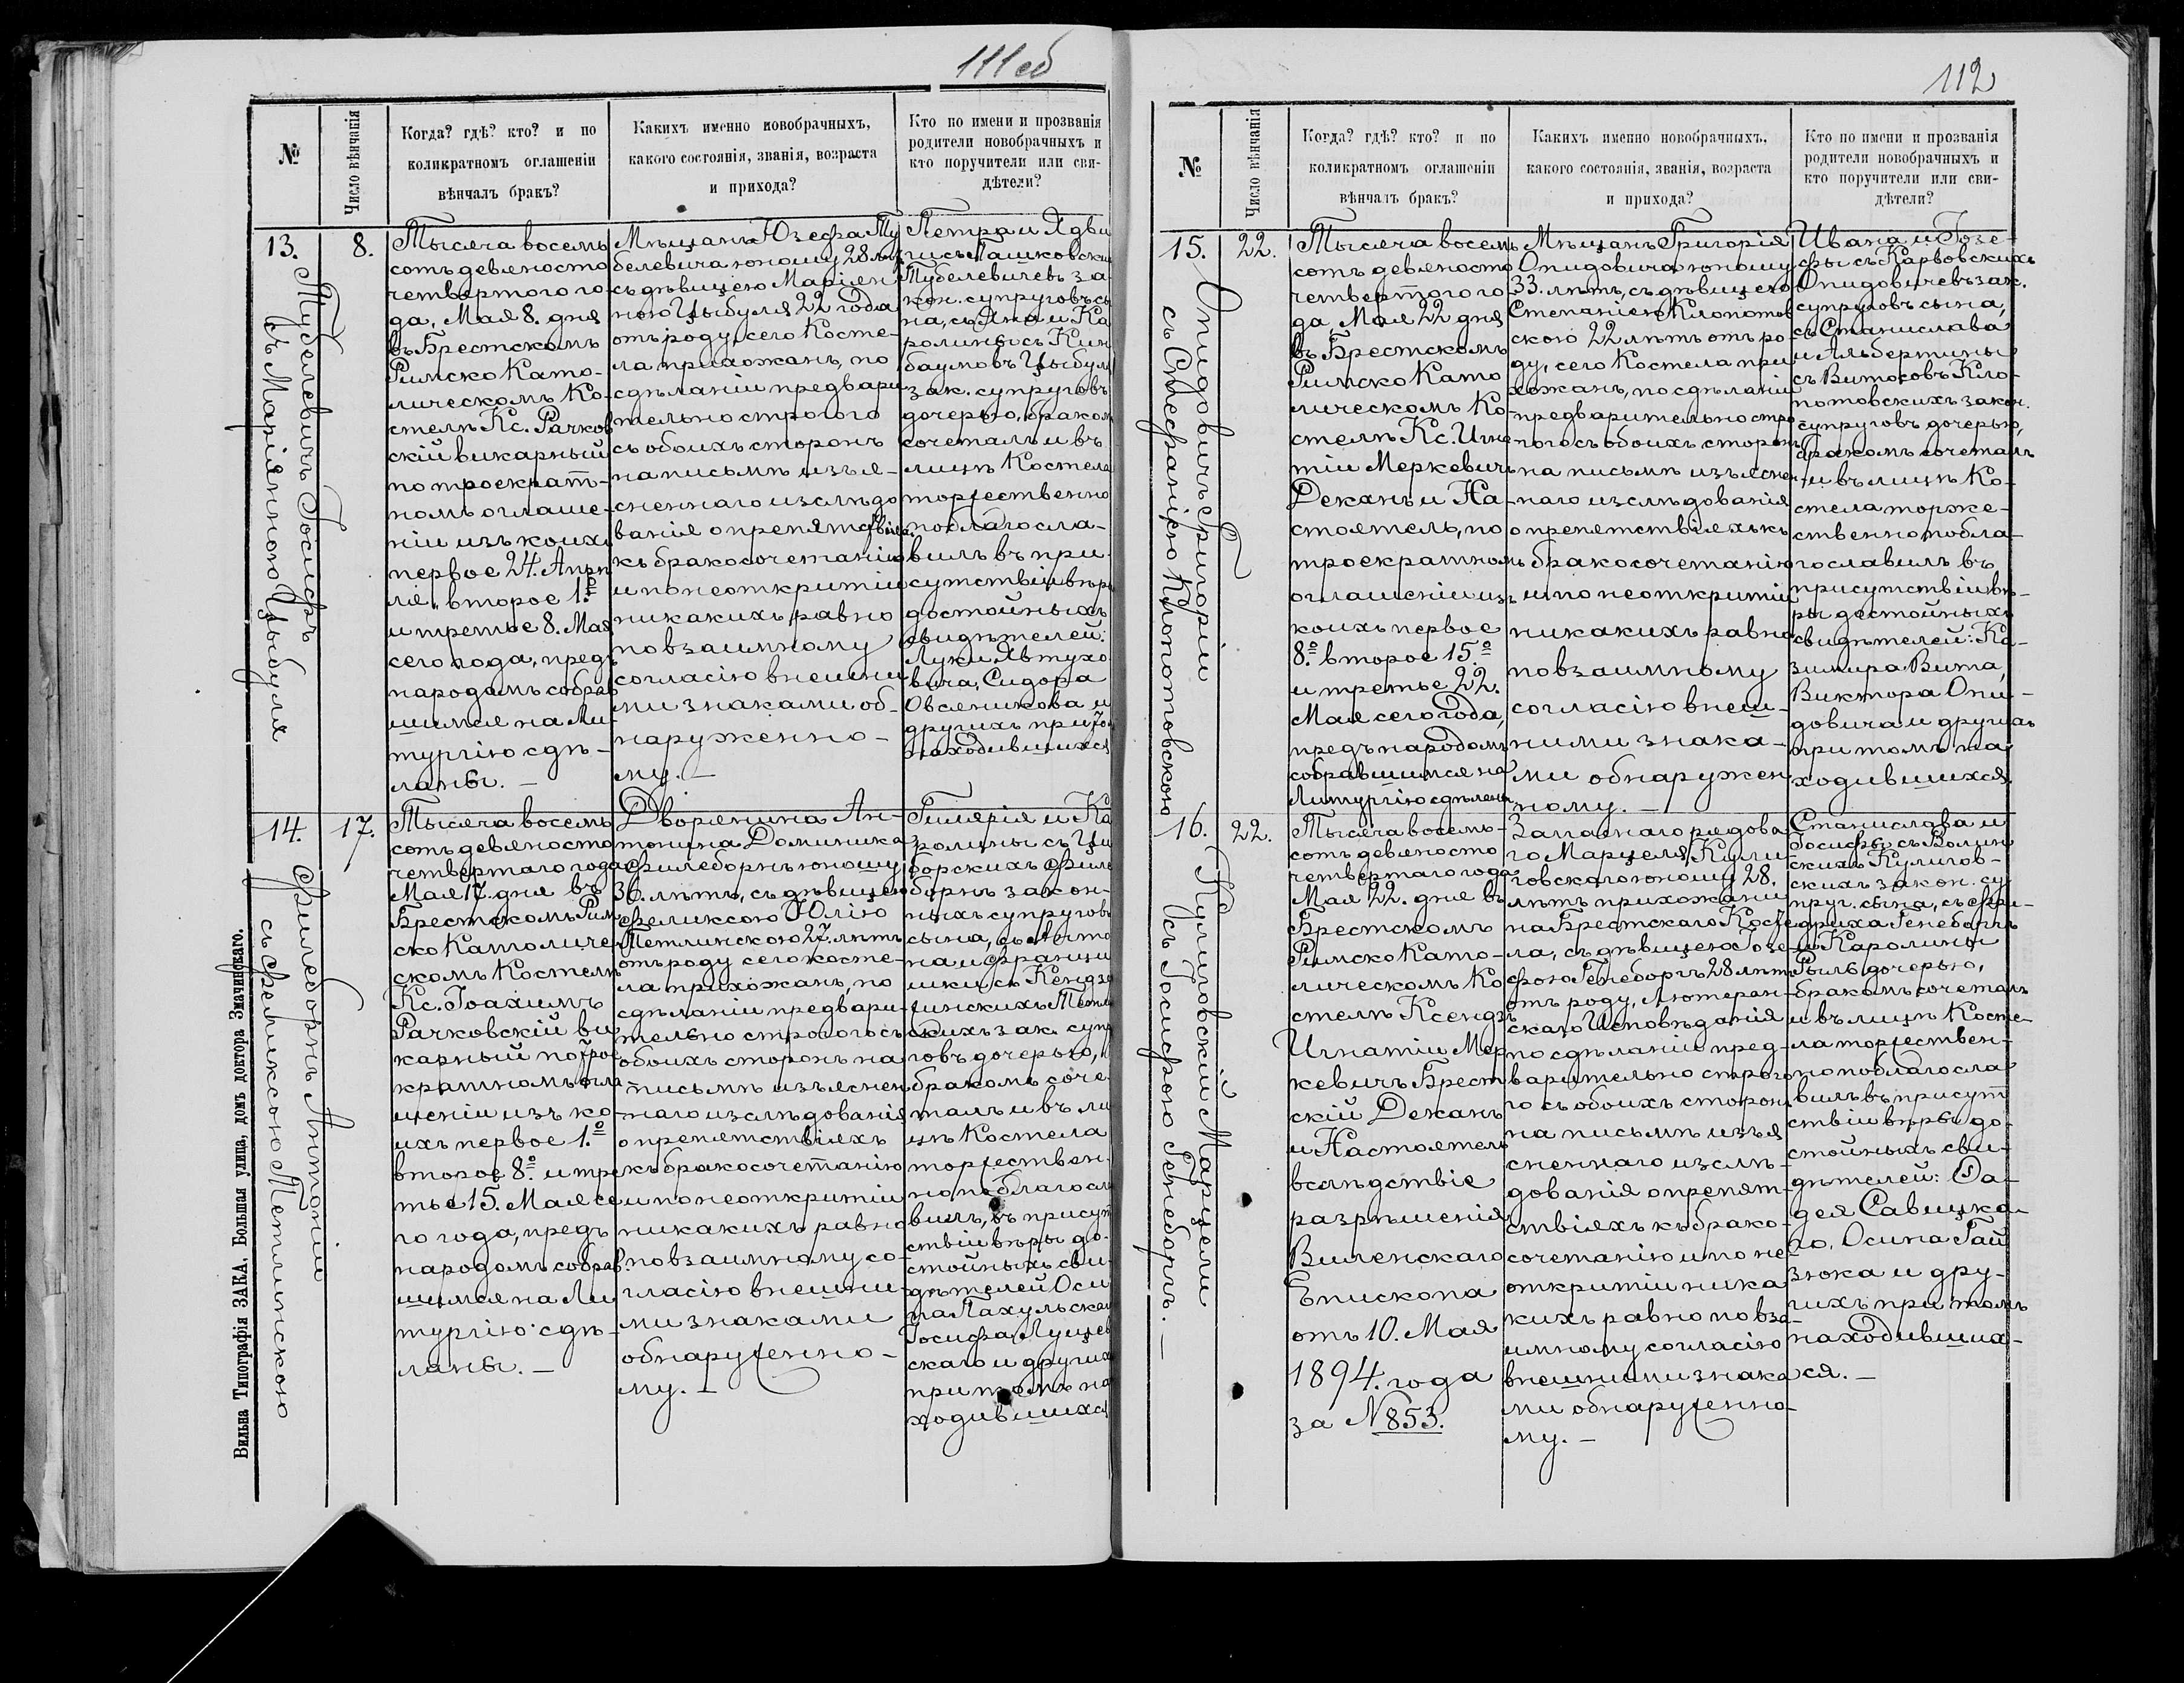 111 об
№
Число вѣнчанія
Когда? гдѣ? кто? и по
коликратномъ оглашеніи
вѣнчалъ бракъ?
Какихъ именно новобрачныхъ,
какого состоянія, званія, возраста
и прихода?
Кто по имени и прозванія
родители новобрачныхъ и
кто поручители или сви-
дѣтели?
13.
Тубелевичъ Іосифъ
съ Маріянною Цыбуля
8.
Тысяча восемь
сотъ девяносто
четвертого го-
да, Мая 8. дня
въ Брестскомъ
Римско Като-
лическомъ Ко-
стелѣ Кс. Рачков
скій викарный
по троекрат-
номъ оглаше-
ніи изъ коихъ
первое 24. Апрѣ
ля, второе 1.º
и третье 8. Мая
сего года, предъ
народомъ собрав
шимся на Ли-
тургію сдѣ-
ланы. —
Мѣщанъ Юзефа Ту
белевича юношу 28 лѣтъ
съ дѣвицею Маріян
ною Цыбуля 22 года
отъ роду, сего Косте-
ла прихожанъ, по
сдѣланіи предвари
тельно строгого
съ обоихъ сторонъ
на письмѣ изъя-
сненнаго изслѣдо
ванія о препятствіяхъ
къ бракосочетанію
и по неоткрытіи
никакихъ, равно
по взаимному
согласію внешни
ми знаками об-
наруженно-
му. —
Петра и Ядви
ги съ Пашковских
Тубелевичевъ за
кон. супруговъ сы
на, съ Яна и Ка
ролины съ Кин
баумовъ Цыбуля
зак. супруговъ
дочерью, бракомъ
сочеталъ и въ
лицѣ Костела
торжественно
поблагосла-
вилъ въ при-
сутствіи вѣры
достойныхъ
свидѣтелей:
Луки Автухо
вича, Сидора
Овсяникова и
другихъ при том
находившихся
14.
Филеборнъ Антоній
съ Феликсою Петлинскою
17.
Тысяча восемь
сотъ девяносто
четвертаго года
Мая 17. дня въ
Брестскомъ Рим
ско Католиче
скомъ Костелѣ
Кс. Іоахимъ
Рачковскій ви
карный по трое
кратномъ огла
шеніи изъ ко-
ихъ первое 1.º
второе 8.º и тре
тье 15. Мая се
го года, предъ
народомъ собрав
шимся на Ли
тургію сдѣ-
ланы. —
Дворянина Ан-
тонина Доминика
Филеборнъ юношу
36. лѣтъ, съ дѣвицею
Феликсою Юлію
Петлинскою 27. лѣтъ
отъ роду сего Косте-
ла прихожанъ, по
сдѣланіи предвари-
тельно строгого съ
обоихъ сторонъ на
письмѣ изъяснен
наго изслѣдованія
о препятствіяхъ
къ бракосочетанію
и по неоткрытіи
никакихъ равно
по взаимному со-
гласію внешни-
ми знаками
обнаруженно-
му. —
Гилярія и Ка
ролины съ Ци
борскихъ Филе
борнъ закон-
ныхъ супруговъ
сына, съ Анто
на и Франци
шки съ Кендзе
скихъ зак. супр
говъ дочерью,
бракомъ соче
талъ и въ ли
цѣ Костела
торжествен-
но поблагосл
вилъ, въ присут
ствіи вѣры до-
стойныхъ сви-
дѣтелей Оси
па Пахульскаго
Іосифа Луцев
скаго и других
при томъ на
ходившихся
Вильна Типографія ЗАКА, Большая улица, домъ доктора Змачинскаго.
112
№
Число вѣнчанія
Когда? гдѣ? кто? и по
коликратномъ оглашеніи
вѣнчалъ бракъ?
Какихъ именно новобрачныхъ,
какого состоянія, званія, возраста
и прихода?
Кто по имени и прозванія
родители новобрачныхъ и
кто поручители или сви-
дѣтели?
15.
Опидовичъ Григорій
съ Стефаніею Клопотовскою
22.
Тысяча восемь
сотъ девяносто
четвертого го
да, Мая 22 дня
въ Брестскомъ
Римско Като
лическомъ Ко-
стелѣ Кс. Игна
тій Меркевичъ
Деканъ и На-
стоятель, по
троекратномъ
оглашеніи изъ
коихъ первое
8.º второе 15.º
и третье 22.
Мая сего года,
предъ народомъ
собравшимся на
Литургію сдѣланы
Мѣщанъ Григорія
Опидовича юношу
33. лѣтъ, съ дѣвицею
Степаніею Клопотов
скою 22 лѣтъ отъ ро-
ду, сего Костела при
хожанъ, по сдѣланіи
предварительно стро
гого съ обоихъ сторонъ
на письмѣ изъяснен-
наго изслѣдованія
о препятствіяхъ къ
бракосочетанію
и по неоткрытіи
никакихъ равно
по взаимному
согласію внеш-
ними знака-
ми обнаружен
ному. —
Ивана и Іозе-
фы съ Карвовскихъ
Опидовичевъ зак.
супруговъ сына,
съ Станислава
и Альбертины
съ Витосовъ Кло-
потовскихъ закон.
супруговъ дочерью,
бракомъ сочеталъ
и въ лицѣ Ко-
стела торже-
ственно побла-
гославилъ въ
присутствіи вѣ-
ры достойныхъ
свидѣтелей: Ка-
зимира Вита,
Виктора Опи-
довича и другихъ
при томъ на
ходившихся.
16.
Кулиговскій Марцелій
съ Іосифою Генеборгъ. —
22.
Тысяча восемь-
сотъ девяносто
четвертаго года
Мая 22. дня въ
Брестскомъ
Римско Като-
лическомъ Ко
стелѣ Ксендзъ
Игнатій Мер
кевичъ Брест
скій Деканъ
и Настоятель
вслѣдствіе
разрѣшенія
Виленскаго
Епископа
отъ 10. Мая
1894. года
за № 853.
Запаснаго рядова
го Марцеля Кули-
говскаго юношу 28.
лѣтъ прихожани
на Брестскаго Косте
ла, съ дѣвицею Іозе
фою Генеборгъ 28 лѣтъ
отъ роду, Лютеран-
скаго Исповѣданія
по сдѣланіи пред-
варительно строго
го съ обоихъ сторон
на письмѣ изъя
сненнаго изслѣ-
дованія о препят-
ствіяхъ къ брако-
сочетанію и по не
открытіи ника
кихъ равно по вза-
имному согласію
внешними знака
ми обнаруженно-
му. —
Станислава и
Іосифы съ Волин
скихъ Кулигов-
скихъ закон. су
пруг. сына, съ Фри-
дриха Генеборгъ
и Каролины
Рыль дочерью,
бракомъ сочеталъ
и въ лицѣ Косте-
ла торжествен-
но поблагосла
вилъ въ присут
ствіи вѣры до-
стойныхъ сви-
дѣтелей: Фа-
дея Савицка-
го, Осипа Гай
зюка и дру-
гихъ при томъ
находивших-
ся. —